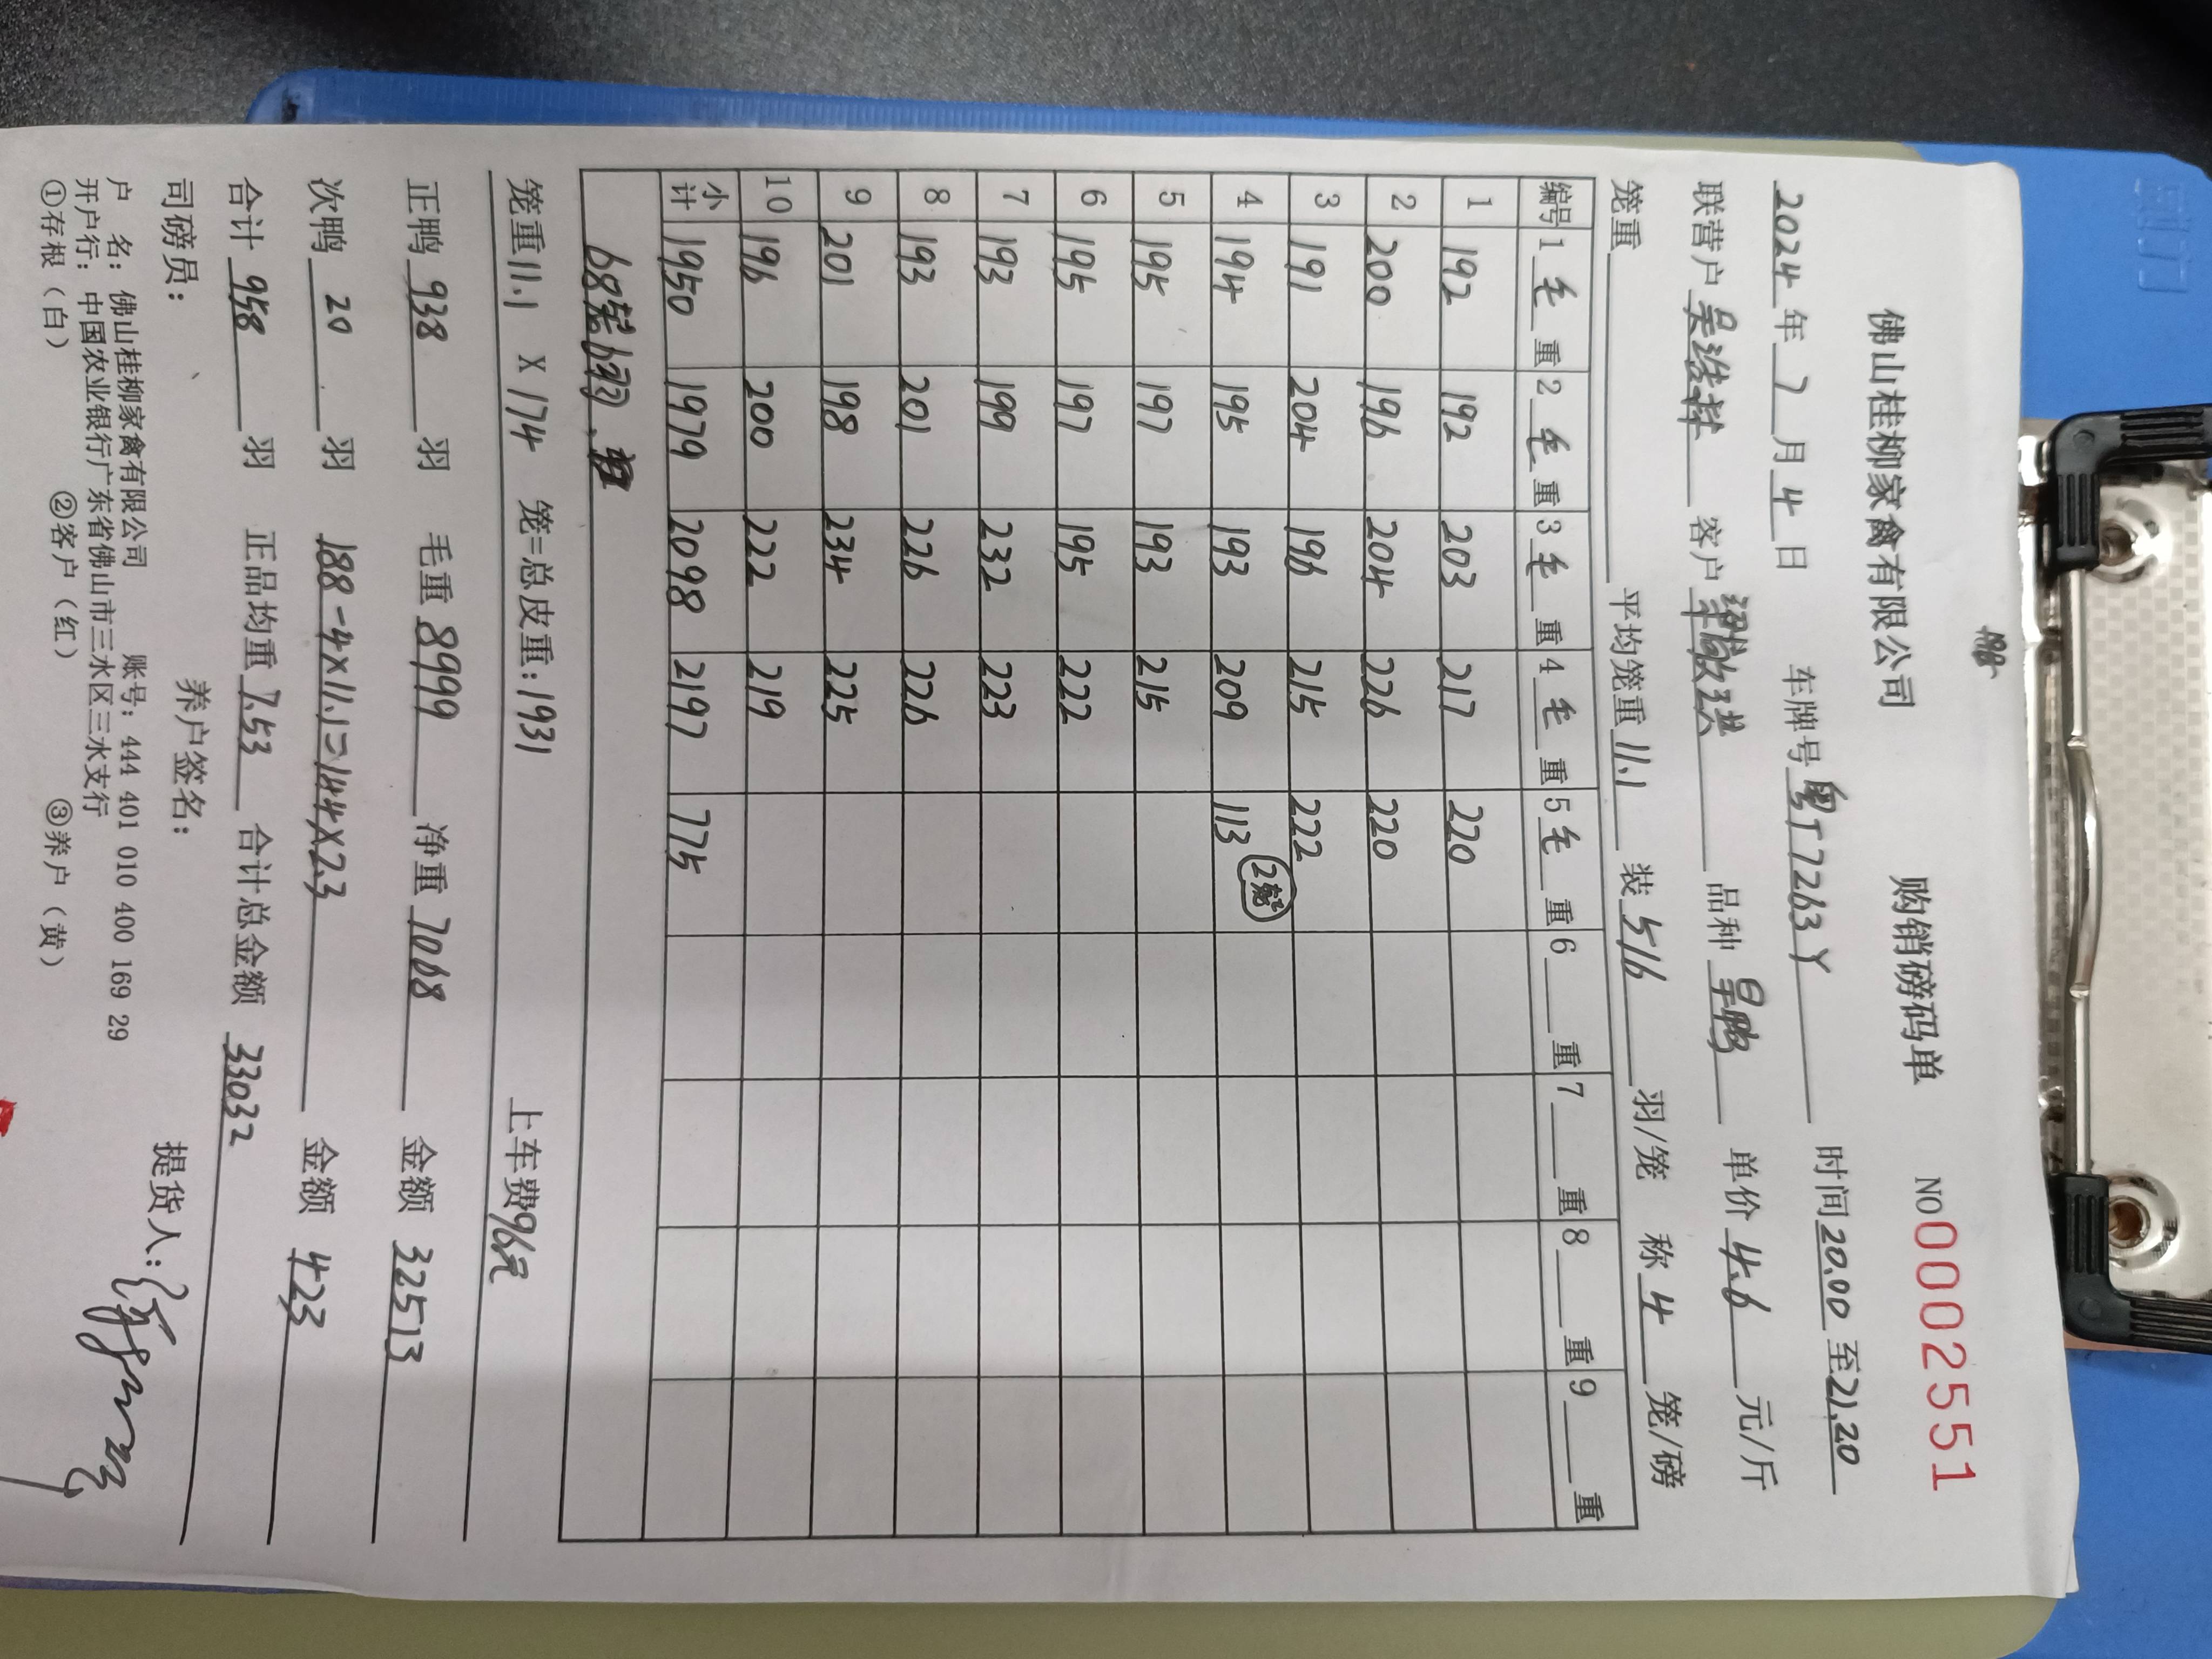 佛山桂柳家禽有限公司 购销磅码单 NO 0002551
2024年7月4日 车牌号粤T7263Y 时间20.00至21.20
联营户吴洪祥 客户 品种旱鸭 单价4.6元/斤
笼重 平均笼重11.1 装5.16羽/笼 称4笼/磅
编号 1毛重 2毛重 3毛重 4毛重 5毛重 6重 7重 8重 9重
1 192 192 203 217 220
2 200 196 204 226 220
3 191 204 196 215 222
4 194 195 193 209 113 2笼
5 195 197 193 215
6 195 197 195 222
7 193 199 232 223
8 193 201 226 226
9 201 198 234 225
10 196 200 222 219
小计 1950 1979 2098 2197 775
68笼6羽
笼重11.1 X 174 笼=总皮重:1931 上车费96元
正鸭938羽 毛重8999 净重7068 金额32513
次鸭20羽 188-4×11.1=144×2.3 金额423
合计958羽 正品均重7.53 合计总金额33032
司磅员: 养户签名: 提货人:
户 名: 佛山桂柳家禽有限公司 账号: 444 401 010 400 169 29
开户行: 中国农业银行广东省佛山市三水区三水支行
①存根(白) ②客户(红) ③养户(黄)